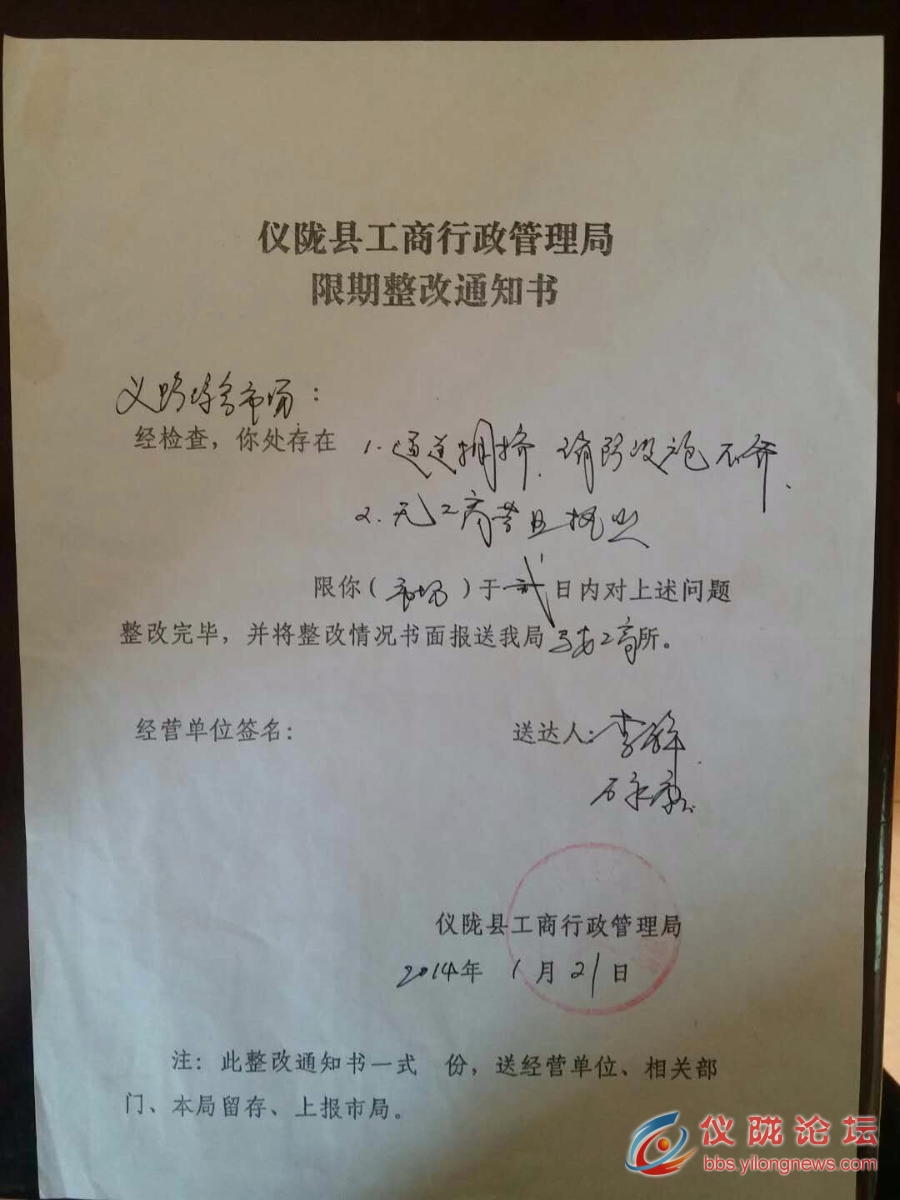 仪陇县工商行政管理局
限期整改通知书
义乌综合市场：
经检查，你处存在 1.通道拥挤、消防设施不齐、
2.无工商营业执照
限你（市场）于贰日内对上述问题
整改完毕，并将整改情况书面报送我局马安工商所。
经营单位签名： 送达人：李
石永
仪陇县工商行政管理局
2014年 1月21日
注：此整改通知书一式 份，送经营单位、相关部
门、本局留存、上报市局。
仪陇论坛
bbs.yilongnews.com